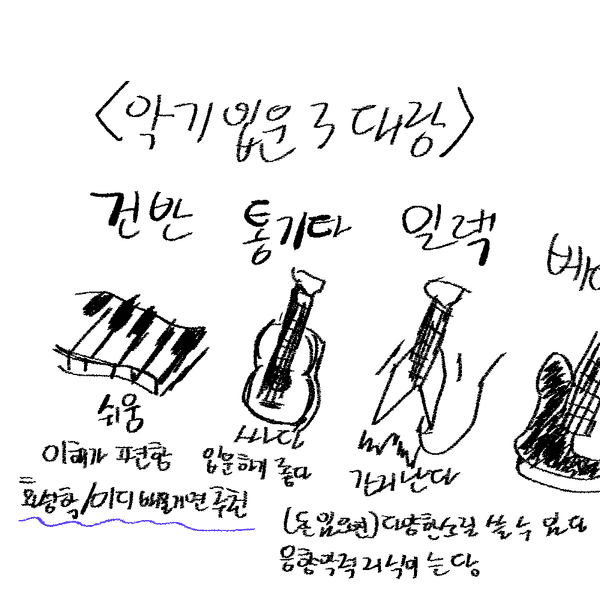 <악기 입문 3 대장>
건반 통기타 일렉 베이
쉬움
이해가 편함
화성학/미디 배울거면 추천
싸다
입문하기 좋다
간지난다
(돈 있으면) 다양한 소릴 낼 수 있다
음향악적 지식이 는당